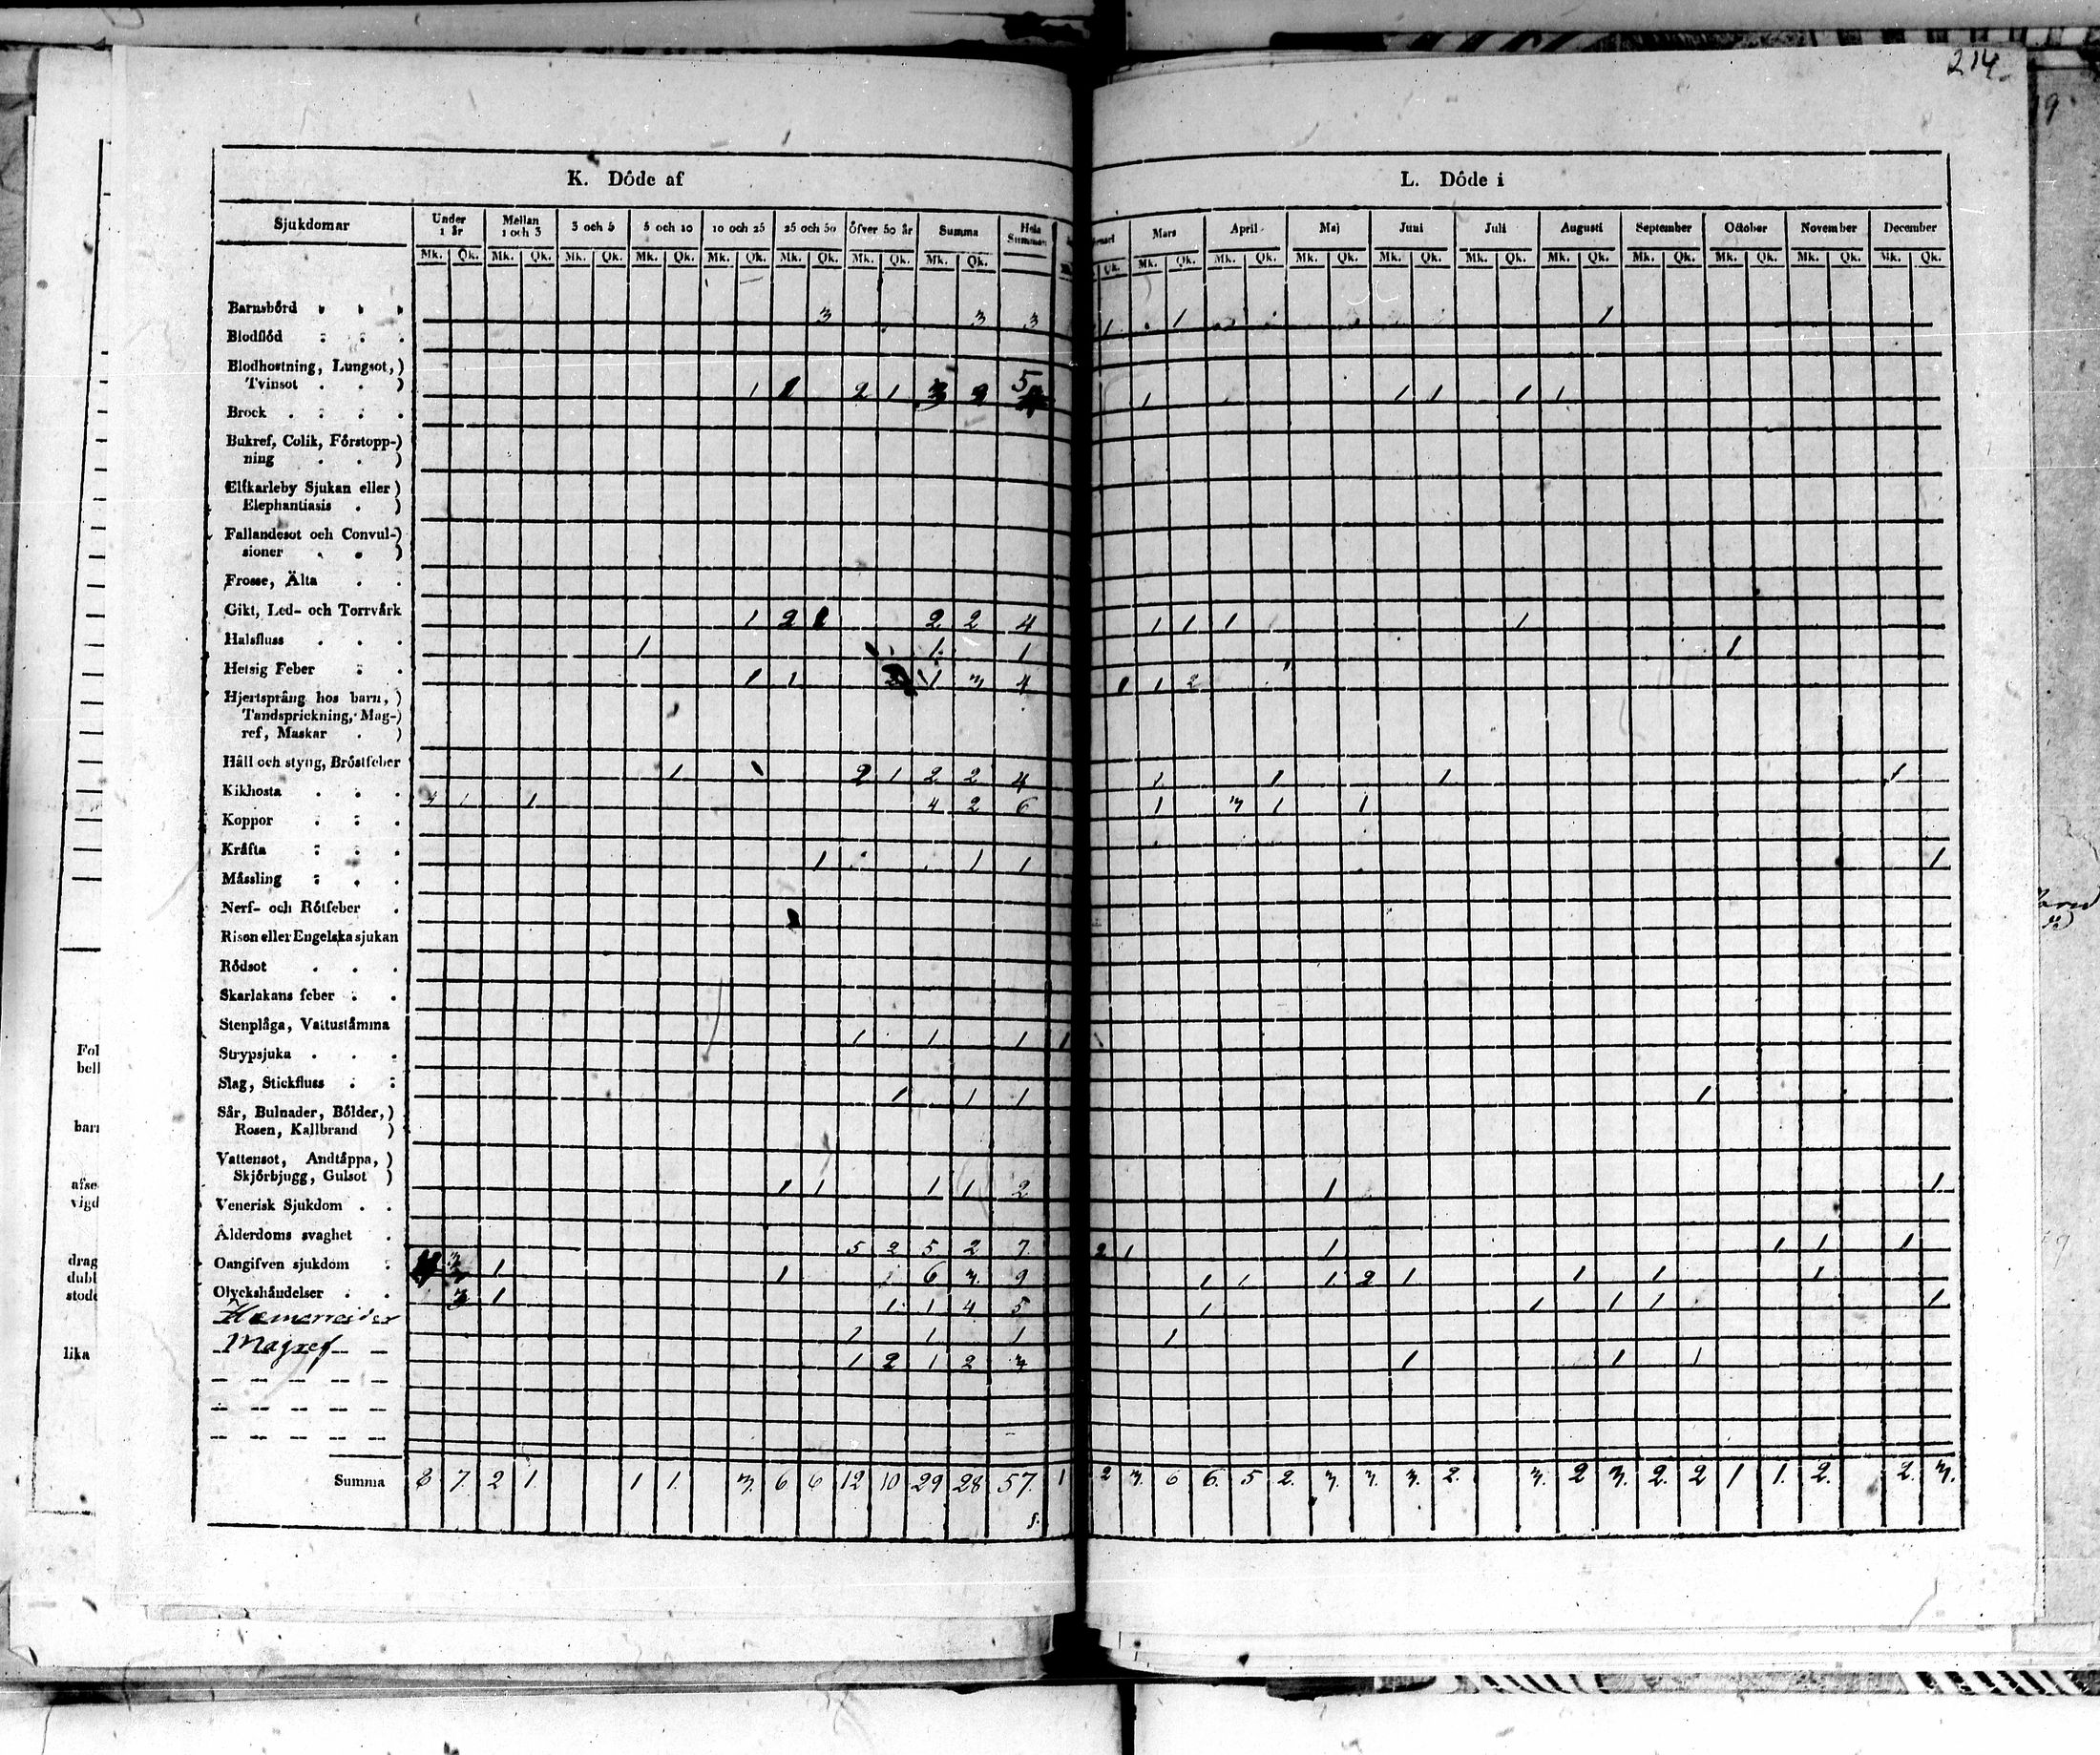 214
K. Döde af
L. Döde i
Sjukdomar Under 1 år Mellan 1 och 3 3 och 5 5 och 10 10 och 25 25 och 50 Öfver 50 år Summa Hela Summan
Mars April Maj Juni Juli Augusti September October November December
Mk. Qk. Mk. Qk. Mk. Qk. Mk. Qk. Mk. Qk. Mk. Qk. Mk. Qk. Mk. Qk.
Qk. Mk. Qk. Mk. Qk. Mk. Qk. Mk. Qk. Mk. Qk. Mk. Qk. Mk. Qk. Mk. Qk. Mk. Qk. Mk. Qk.
Barnsbörd 3 3 3 1 1 1
Blodflöd
Blodhostning, Lungsot,)
Tvinsot . . ) 1 1 2 1 3 2 5 1 1 1 1 1
Brock
Bukref, Colik, Förstopp-)
ning . . )
Elfkarleby Sjukan eller )
Elephantiasis . )
Fallandesot och Convul-)
sioner . . )
Frosse, Älta
Gikt, Led- och Torrvärk 1 2 1 2 2 4 1 1 1 1
Halsfluss 1 1 1 1
Hetsig Feber 1 1 2 1 3 4 1 1 2
Hjertsprång hos barn, )
Tandsprickning, Mag-)
ref, Maskar . )
Håll och styng, Bröstfeber 1 2 1 2 2 4 1 1 1 1
Kikhosta 4 1 1 4 2 6 1 3 1 1
Koppor
Kräfta 1 1 1 1
Mässling
Nerf- och Rötfeber
Rison eller Engelska sjukan
Rödsot
Skarlakans feber
Stenplåga, Vattustämma 1 1 1 1
Strypsjuka
Slag, Stickfluss 1 1 1 1
Sår, Bulnader, Bölder,)
Rosen, Kallbrand )
Vattensot, Andtäppa, )
Skjörbjugg, Gulsot ) 1 1 1 1 2 1 1
Venerisk Sjukdom
Ålderdoms svaghet 5 2 5 2 7 2 1 1 1 1 1
Oangifven sjukdom 4 3 1 1 6 3 9 1 1 1 2 1 1 1 1
Olyckshändelser 3 1 1 1 4 5 1 1 1 1 1
1 1 1 1
Magref 1 2 1 2 3 1 1 1
Summa 8 7 2 1 1 1 3 6 6 12 10 29 28 57 1 2 3 6 6 5 2 3 3 3 2 3 2 3 2 2 1 1 2 2 3
Fol
bell
barn
afse
vigd
drag
dubl
stode
lika